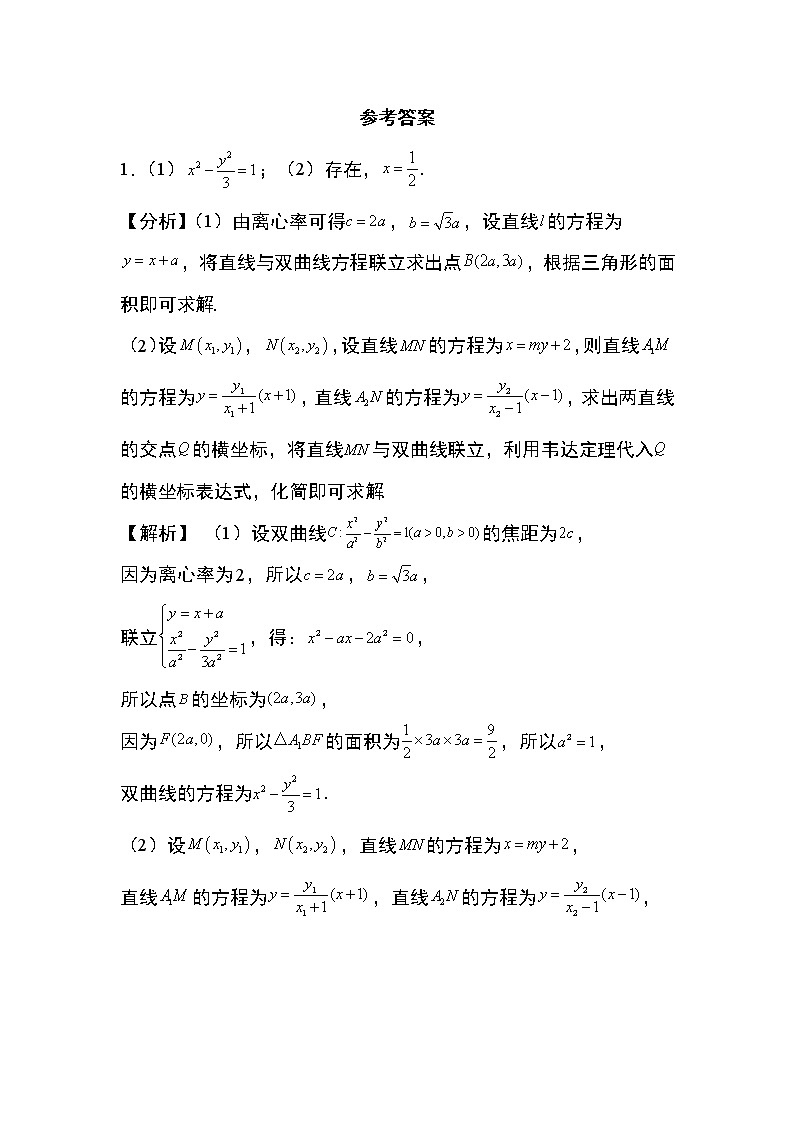 参考答案
1.（1）x² − y²/3 = 1；（2）存在，x = 1/2.
【分析】（1）由离心率可得c = 2a，b = √3a，设直线l的方程为
y = x + a，将直线与双曲线方程联立求出点B(2a,3a)，根据三角形的面
积即可求解.
（2）设M(x₁,y₁)，N(x₂,y₂),设直线MN的方程为x = my + 2,则直线A₁M
的方程为y = y₁/(x₁+1) (x+1)，直线A₂N的方程为y = y₂/(x₂−1) (x−1)，求出两直线
的交点Q的横坐标，将直线MN与双曲线联立，利用韦达定理代入Q
的横坐标表达式，化简即可求解
【解析】（1）设双曲线C: x²/a² − y²/b² = 1(a > 0, b > 0)的焦距为2c，
因为离心率为2，所以c = 2a，b = √3a，
联立{y = x + a, x²/a² − y²/3a² = 1，得：x² − ax − 2a² = 0，
所以点B的坐标为(2a,3a)，
因为F(2a,0)，所以△A₁BF的面积为1/2 × 3a × 3a = 9/2，所以a² = 1，
双曲线的方程为x² − y²/3 = 1.
（2）设M(x₁,y₁)，N(x₂,y₂)，直线MN的方程为x = my + 2，
直线A₁M 的方程为y = y₁/(x₁+1) (x+1)，直线A₂N的方程为y = y₂/(x₂−1) (x−1)，